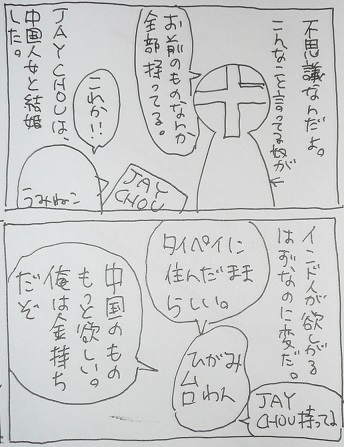 不思議なんだよ。
こんなこと言ってる奴が
お前のものなんか
全部持ってる。
これか!!
JAY CHOUは、
中国人女と結婚
した。
JAY
CHOU
うみねこ
インド人が欲しがる
はずなのに変だ。
タイペイに
住んだまま
らしい。
JAY
CHOU持ってる
中国のもの
もっと欲しい。
俺は金持ち
だぞ